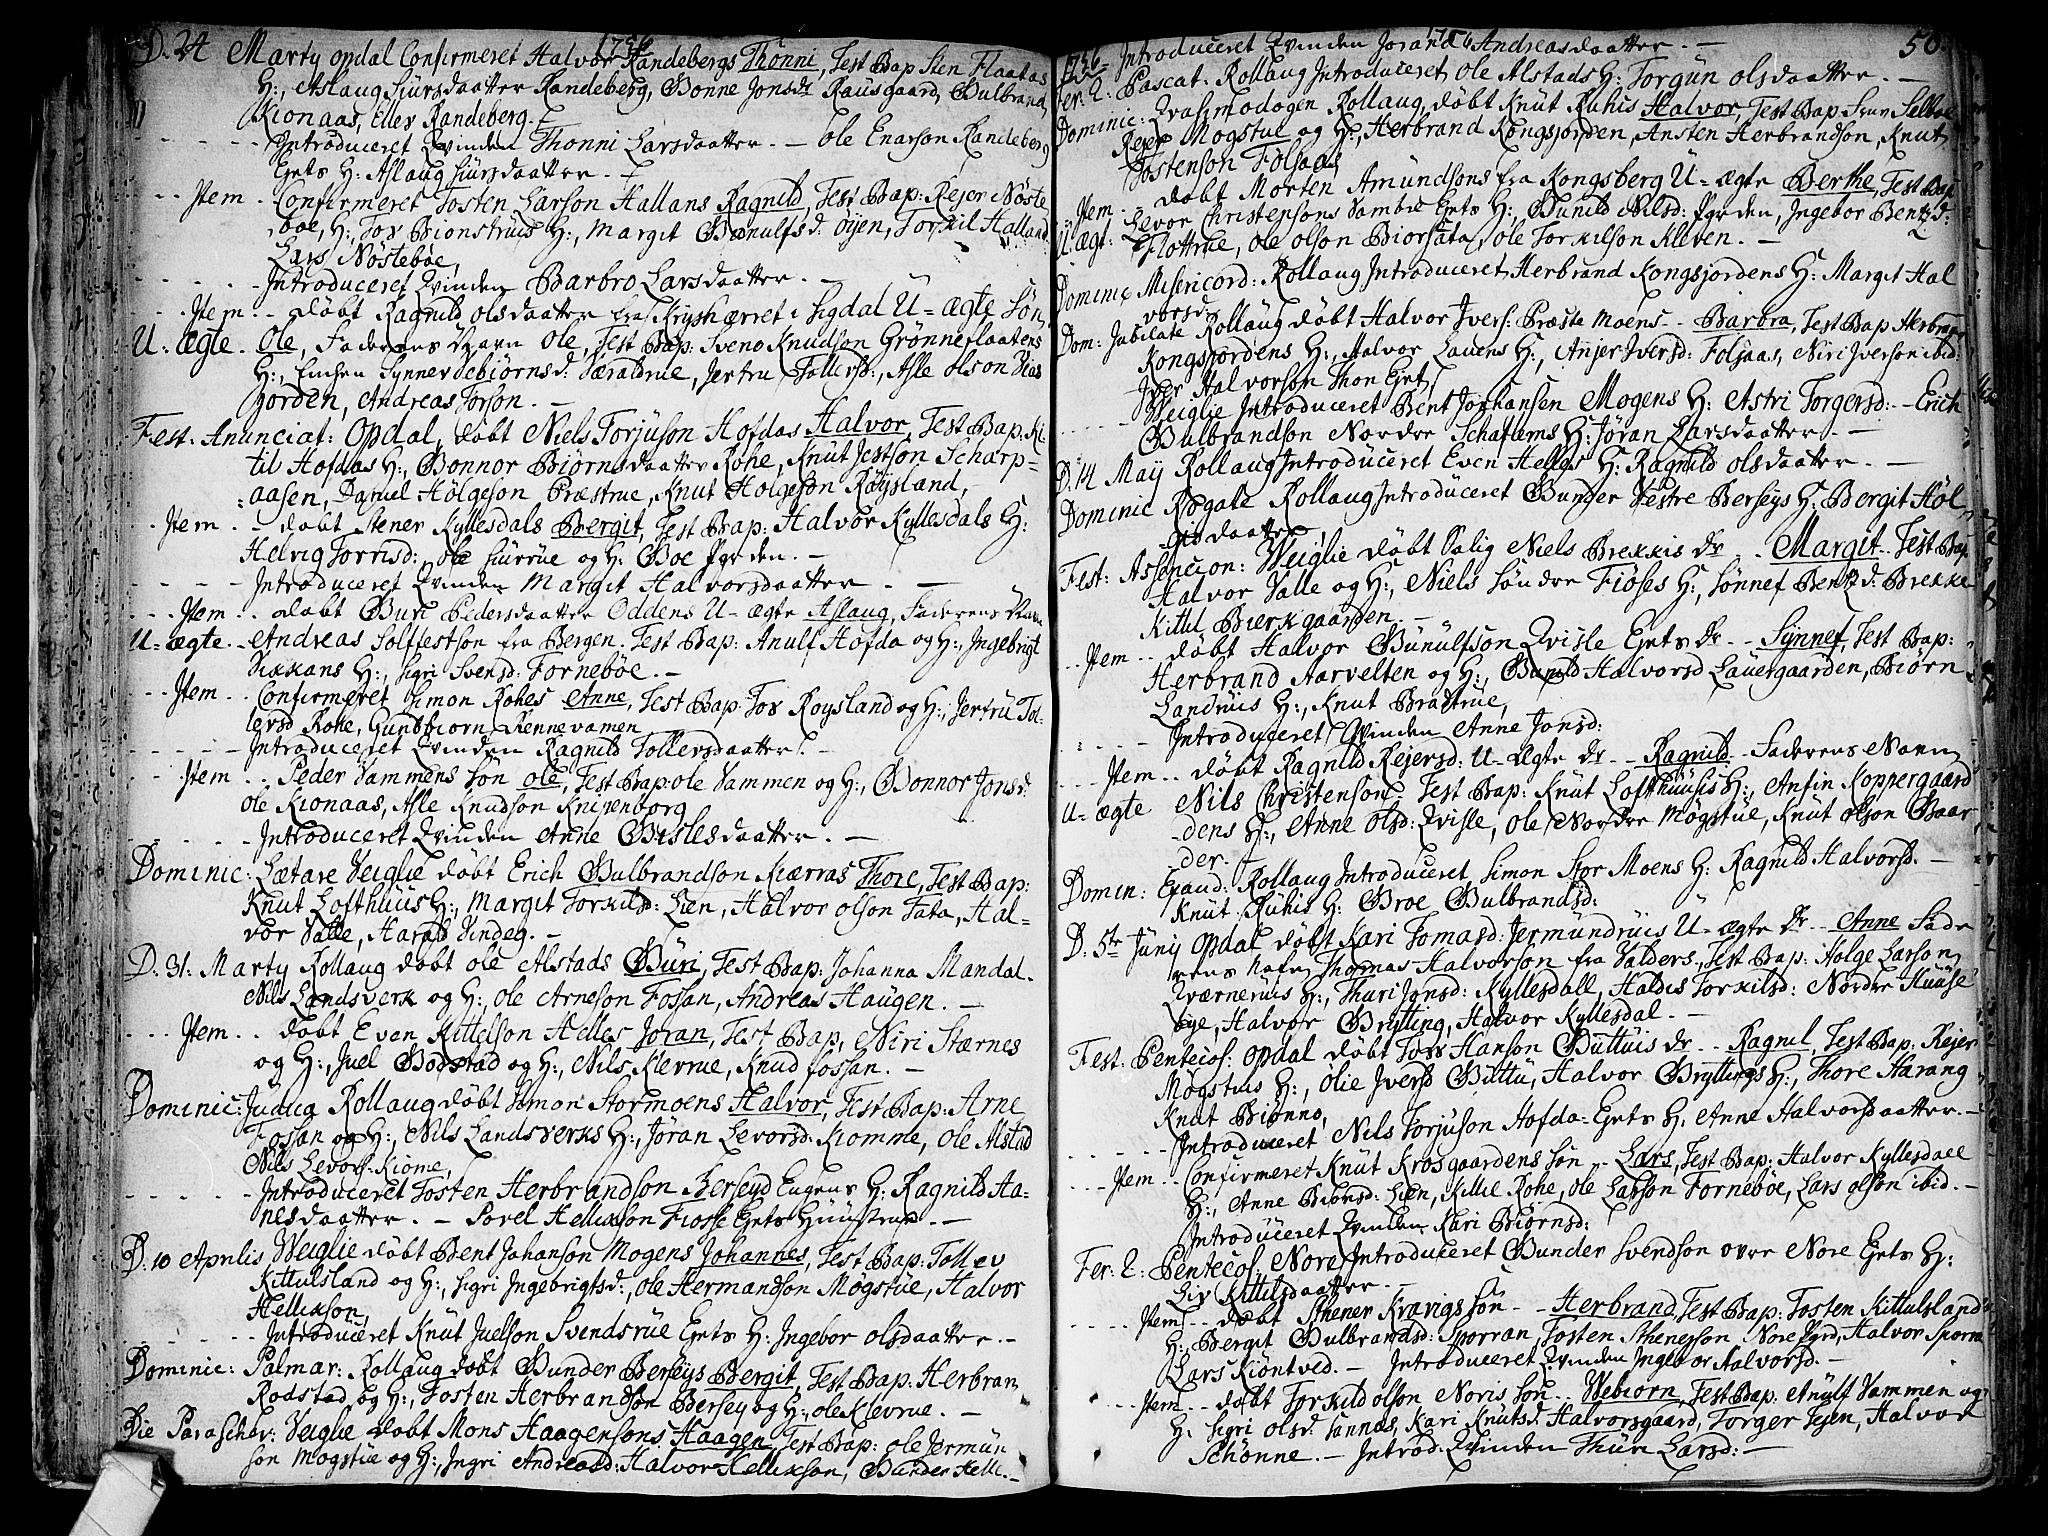 1736
D. 24 Marty Opdal Confirmeret Halvor Randebergs Thonni, Test Bap Sten Flaatas
H:, Aslaug Siursdaatter Randeberg, Gonne Jonsdr Rausgaard, Gulbrand,
Kionaas, Eller Randeberg.
Introduceret Qvinden Thonni Larsdaatter. — Ole Enarson Randeberg
Gets H: Aslaug Siursdaatter. —
Item. Confirmeret Tosten Larson Hallans Ragnild, Test Bap: Rejer Nøste
boe, H:, Tor Bionstruis H:, Margit Gunulfsd. Øijen, Torkil Halland
Lars Nøstebøe,
Introduceret Qvinden Barbro Larsdaatter. —
Item. døbt Ragnild olsdaatter fra Kryshærret i Sigdal U-ægte Søn
U: ægte. Ole, Faderens Navn Ole, Test Bap: Sveno Knudson Grønneflaatens
H:, Enchen Synnev Vebiørnsd: Væraldrue, Jertru Tollersd:, Asle olson Vias
gorden, Andreas Torson. —
Fest: Anunciat: Opdal, døbt Niels Torjuson Hofdas Halvor, Test Bap: Ki
til Hofdas H:, Gonnor Biørnsdaatter Rohe, Knut Jestson Scharp=
aasen, Daniel Hølgeson Præstrue, Knut Holgeson Røijsland,
Item. døbt Stener Kyllesdals Bergit, Test Bap: Halvor Kyllesdals H:
Helvig Torrisd: ole Siurrue og H: Boe Pgrden. —
Introduceret Qvinden Margit Halvorsdaatter —
Item. døbt Guri Pedersdaatter Oddens U-ægte Aslaug, Faderens Navn
U-ægte. Andreas Solfestson fra Bergen. Test Bap: Anulf Hofda og H:, Ingebrigt
Vikkans H:, Sigri Svensd: Fornebøe. —
Item. Confirmeret Simon Rohes Anne, Test Bap: Tor Roysland og H:, Jertru Tol-
lersd Rohe, Gundbiorn Rennevamen
Introduceret Qvinden Ragnild Tollersdaatter. —
Item. Peder Vammens Søn ole, Test Bap: ole Vammen og H:, Gonnor Jonsd:
ole Kionaas, Asle Knudson Knivenborg
Introduceret Qvinden Anne Gislesdaatter. —
Dominic: Lætare Veiglie døbt Erich Gulbrandson Kiærras Thore, Test Bap:
Knut Lofthuus H:, Margit Torkild: Lien, Halvor olson Tata, Hal-
vor Valle, Harald Vindeg. —
D. 31. Marty Rollaug døbt ole Alstads Guri, Test Bap: Johanna Mandal.
Nils Landsverk og H:, ole Arneson Fossan, Andreas Haugen. —
Item. døbt Even Kittelson Helles Joran, Test Bap. Niri Stærnes
og H:, Juel Bodstad og H:, Nils Klevrue, Knud fossan. —
Dominic: Judica Rollaug døbt Simon Stormoens Halvor, Test Bap: Arne
Fossan og H:, Nils Landsverks H:, Jøran Levorsd: Kiomme, Ole Alstad
Nils Levors: Kiome,
Introduceret Tosten Herbrandson Berseyd Eugens H: Ragnild Ha-
nesdaatter. — Povel Hellikson Fiosse Gets Huustrue. —
D: 10 Aprilis Veiglie døbt Bent Johanson Mogens Johannes, Test Bap: Tollev
Kittulsland og H:, Sigri Ingebrigtsd:, ole Hermandson Møgstue, Halvor
Hellikson,
Introduceret Knut Juelson Svendsrue Gets H: Ingebor olsdaatter. —
Dominic: Palmar: Rollaug døbt Gunder Berseys Bergit, Test Bap: Herbran
Rodstad og H:, Tosten Herbrandson Bersey og H:, ole Klevrue. —
Die Paraschev: Veiglie døbt Mons Haagensons Haagen, Test Bap: ole Jermun
son Mogstue og H:, Ingri Andreasd: Halvor Hellikson, Gunder Helle. —
1736 50.
1736 Introduceret Qvinden Joran Andreasdaatter. —
Fer: 2: Pascat: Rollaug Introduceret Ole Alstads H: Torgun olsdaatter. —
Dominic: Qvasimodogen Rollaug, døbt Knut Ruhis Halvor, Test Bap:
Rejer Mogstue og H:, Herbrand Kongsjorden, Ansten Herbrandson, Knut
Tostenson Følsaas
Item. døbt Morten Amundsons fra Kongsberg U-ægte Berthe, Test Bap
U: ægt: Levor Christensons Vambu Gets H: Gunild Nilsd: Pgrden, Ingebor Bentzd:
Flottrue, ole olson Biorsata, ole Torkilson Kleven. —
Dominic Misericord: Rollaug Introduceret Herbrand Kongsjordens H: Margit Hal
vorsd:
Dom: Jubilate Rollaug døbt Halvor Jvers: Præste Moens — Barbra, Test Bap Herbran
Kongsjordens H:, Halvor Lauens H:, Anjer Jversd: Folsaas, Niri Jverson ibid:
Jver Halvorson Thon Gret,
Veiglie Introduceret Bent Johansen Mogens H: Astri Torgersd: — Erich
Gulbrandson Nordre Schaftems H: Jøran Larsdaatter. —
D: 14 Maij Rollaug Introduceret Even Helles H: Ragnild olsdaatter. —
Dominic Rogate Rollaug Introduceret Gunder Vestre Berseys H: Bergit Høl,
gisdaatter
Fest: Assencion: Veiglie døbt Salig Niels Brekkis dr — Margit. Test Bap.
Halvor Valle og H:, Niels Søndre Fiøses H:, Sønnef Bentzd: Brekke
Kittil Bierkgaarden. —
Item. døbt Halvor Gunulfson Qvisle Gets dr — Synnef, Test Bap:
Herbrand Aarvelten og H:, Gunild Halvorsd Lauergaarden, Biørn
Landruis H:, Knut Bradtrue,
Introduceret Qvinden Anne Jonsd:
Item. døbt Ragnild Rejersd: U-ægte dr — Ragnild. Faderens Navn
U-ægte Nils Christenson. Test Bap: Knut Lofthuusis H:, Anfin Koppergaard
dens H:, Anne Olsd: Qvisle, ole Nordre Møgstue, Knut olson Baar,
der. —
Domin: Exaud: Rollaug Introduceret, Simon Stor Moens H: Ragnild Halvorsd. —
Knut Ruhis H: Groe Gulbrandsd:
D: 5te Junij Opdal døbt Kari Tomasd: Jermundruis U-ægte dr — Anne Fade
rens Nafn Thomas Halvorson fra Valders, Test Bap: Holge Larson
Qværneruis H:, Thuri Jonsd: Kyllesdall, Haldis Torkilsd: Nordre Huuse
bye, Halvor Brytting, Halvor Kyllesdal. —
Fest: Pentecos: Opdal døbt Torr Hanson Guttuis dr — Ragnil, Test Bap: Rejer
Møgstuis H:, Ølie Jversd Guttu, Halvor Bryttings H:, Thore Harang
Knut Bionno,
Introduceret Nels Torjuson Hofda Gets H, Anne Halvorsdaatter. —
Item. Confirmeret Knut Krosgaardens Søn — Lars, Test Bap: Halvor Kyllesdall
H:, Anne Biørsd: Lien, Kittil Rohe, Ole Larson Fornebøe, Lars olson ibid. —
Introduceret Qvinden Kari Biørnsd:
Fer: 2: Pentecos: Nore Introduceret Gunder Svendson over Nore Gets H:
Liv Kittilsdaatter. —
Item. døbt Sthener Kravigs Søn — Herbrand, Test Bap: Tosten Kittulsland
H: Bergit Gulbrandsd: Sporran, Tosten Stheneson, Nore Pgrd, Halvor Sporran
Lars Kiøntved. — Introduceret Qvinden Ingebor Halvorsd. —
Item. døbt Torkild olson Noris Søn. Webiorn, Test Bap: Anulf Vammen og
H: Sigri olsd: Sannes, Kari Knutsd: Halvorsgaard, Torger Tejen, Halvor
Schønne. — Introd: Qvinden Thuri Larsd: —